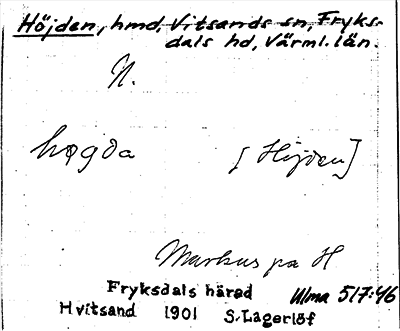 Höjden, hmd, Vitsands sn, Fryks-
dals hd, Värml. län.
N.
hogda [Höjden]
Markus pa H
Fryksdals härad Ulma 517:46
Hvitsand 1901 S. Lagerlöf